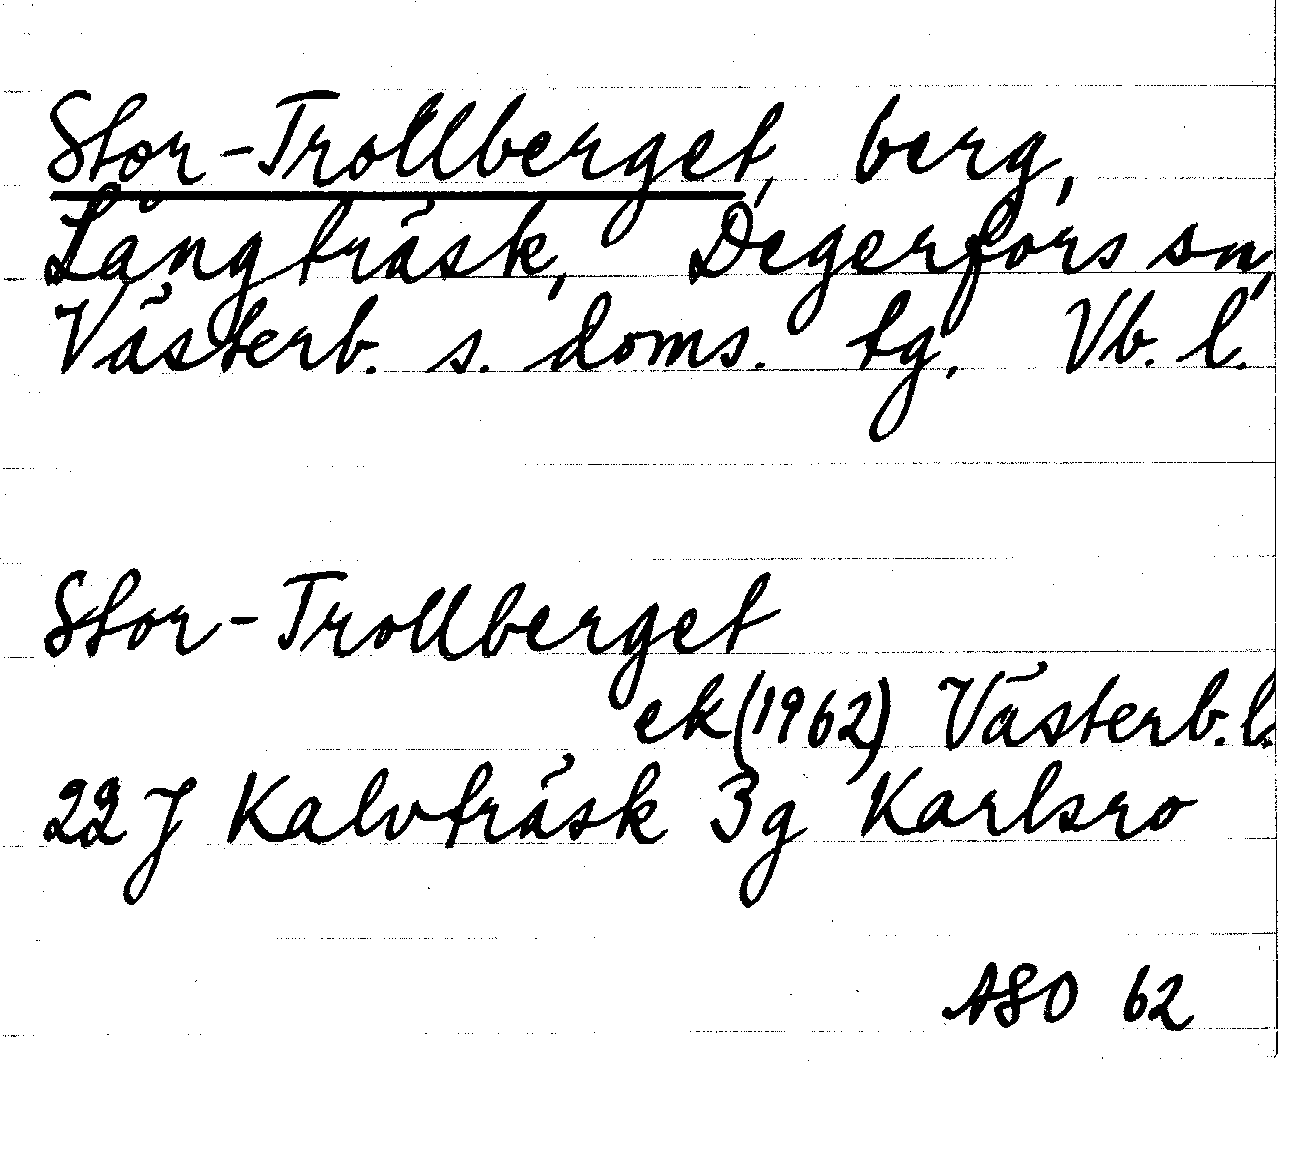 Stor-Trollberget, berg,
Långträsk, Degerfors sn,
Västerb. s. doms. tg. Vb. l.
Stor-Trollberget
ek (1962) Västerb. l.
22 J Kalvträsk 3g Karlsro
ASO 62